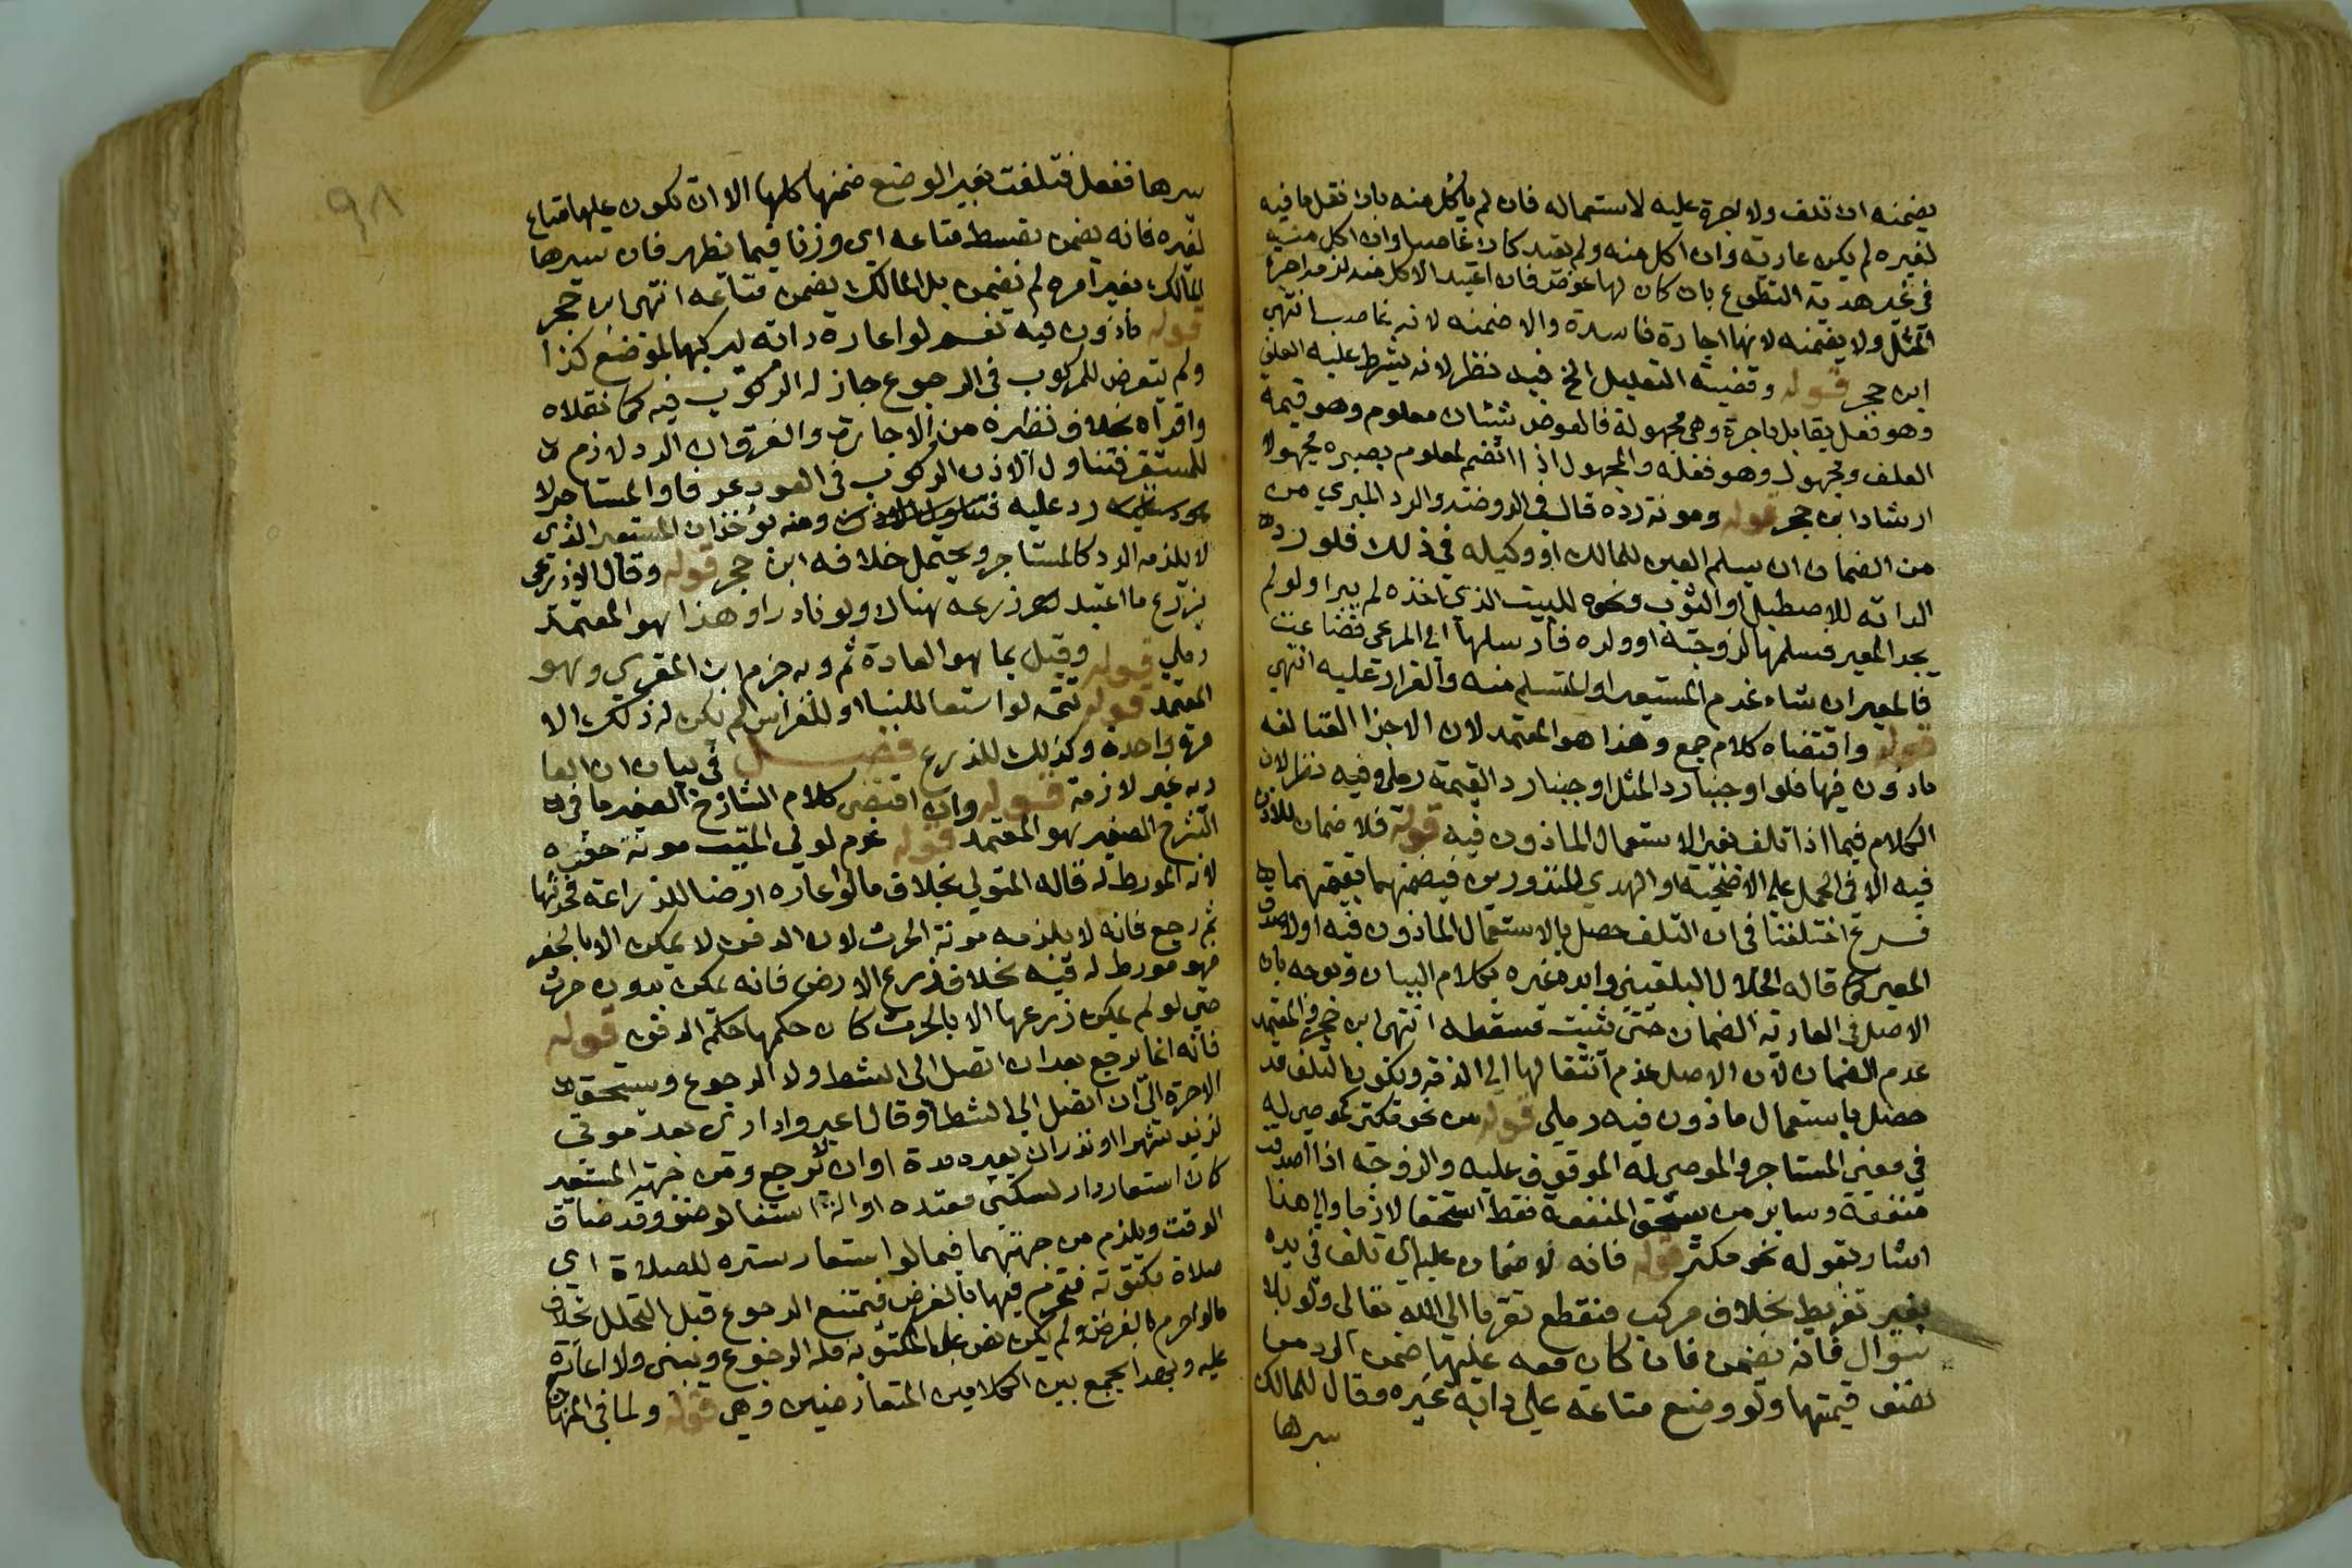 يضمنه ان تلف ولا اجرة عليه لاستعماله فان لم ياكل منه بان نقل ما فيه
لغيره لم يكن عارية وان اكل منه ولم يعتد كان غاصبا وان اكل منه
في غير هدية التطوع بان كان لها عوض فان اعتيد الاكل منه لزمه اجرة
المثل ولا يضمنه لانها اجارة فاسدة والا ضمنه لانه غاصب انتهى
ابن حجر قوله وقضية التعليل الخ فيه نظر لانه يشرط عليه العلف
وهو فعل يقابل باجرة وهي مجهولة فالعوض شيئان معلوم وهو قيمة
العلف ومجهول وهو فعله والمجهول اذا انضم لمعلوم يصيره مجهولا
ارشاد ابن حجر قوله ومونة رده قال في الروضة والرد المبري من
من الضمان ان يسلم العين للمالك او وكيله في ذلك فلو رد
الدابة للاصطبل او الثوب ونحوه للبيت الذي اخذه لم يبرا ولو لم
يجد المعير فسلمها لزوجته او ولده فارسلها الى المرعى فضاعت
فالمعير ان شاء غرم المستعير او المتسلم منه والقرار عليه انتهى
قوله واقتضاه كلام جمع وهذا هو المعتمد لان الاجزا التالفة
ماذون فيها فلو اوجبنا رد المثل اوجبنا رد القيمة رملي وفيه نظر لان
الكلام فيما اذا تلف بغير الاستعمال الماذون فيه قوله فلا ضمان للاذن
فيه الا في الحمل على الاضحية او الهدي المنذورين فيضمنهما بقيمتهما
فرع اختلفنا في ان التلف حصل بالاستعمال الماذون فيه اولا صدق
المعير كما قاله الجلال البلقيني وايده غيره بكلام البيان ويوجه بان
الاصل في العارية الضمان حتى يثبت مسقطه انتهى ابن حجر والمعتمد
عدم الضمان لان الاصل عدم انتقالها الى الذمة ويكون التلف قد
حصل باستعمال ماذون فيه رملي قوله من نحو مكتر كموصى له
في معنى المستاجر والموصى له الموقوف عليه والزوجة اذا اصدقت
منفعة وساير من يستحق المنفعة فقط استحقاقا لازما والى هذا
اشار بقوله نحو مكتر قوله فانه لا ضمان عليه ان تلف في يده
بغير تفريط بخلاف مركب منقطع تقربا الى الله تعالى ولو بلا
سوال فانه يضمن فان كان معه عليها ضمن الرديف
نصف قيمتها ولو وضع متاعه على دابة غيره وقال للمالك
سيرها
٩٨
سيرها ففعل فتلفت بغير الوضع ضمنها كلها الا ان يكون عليها متاع
لغيره فانه يضمن بقسط متاعه اي وزنا فيما يظهر فان سيرها
المالك بغير امره لم يضمن بل المالك يضمن متاعه انتهى ابن حجر
قوله ماذون فيه نعم لو اعاره دابة ليركبها لموضع كذا
ولم يتعرض للركوب في الرجوع جاز له الركوب فيه كما نقلاه
واقراه بخلاف نظيره من الاجارة والفرق ان الرد لازم
للمستعير فتناول الاذن الركوب في العود عرفا والمستاجر لا
رد عليه ومنه يؤخذ ان المستعير الذي
لا يلزمه الرد كالمستاجر ويحتمل خلافه ابن حجر قوله وقال الاذرعي
يزرع ما اعتيد زرعه هناك ولو نادرا وهذا هو المعتمد
رملي قوله وقيل بما هو العادة ثم وبه جزم ابن المقري وهو
المعتمد قوله تتمه لو استعا للبنا او للغراس لم يكن له ذلك الا
مرة واحدة وكذلك للزرع فصل في بيان ان العا
رية غير لازمة قوله وان اقتضى كلام الشارح الصغير ما في
الشرح الصغير هو المعتمد قوله غرم لولي الميت مونة حفره
لانه المورط له قاله المتولي بخلاف ما لو اعاره ارضا للزراعة فحرثها
ثم رجع فانه لا يلزمه مونة الحرث لان الدفن لا يمكن الا بالحفر
فهو مورط له فيه بخلاف زرع الارض فانه يمكن بدون حرث
حتى لو لم يمكن زرعها الا بالحرث كان حكمها حكم الدفن قوله
فانه انما يرجع بعد ان اتصل الى الشط ولا الرجوع ويستحق
الاجرة الى ان اتصل الى الشط وقال اعيروا داري بعد موتي
لزيد شهرا او نذر ان يعيره مدة او ان لا يرجع ومن جهة المستعير
كان استعار دار لسكنى معتدة او الة استقا لوضوء وقد ضاق
الوقت ويلزم من جهتهما فيما لو استعار ستره للصلاة اي
صلاة مكتوبة فتحرم فيها بالفرض فيمتنع الرجوع قبل التحلل بخلاف
ما لو احرم بالفرض ولم يكن نص على المكتوبة فله الرجوع ويبنى ولا اعادة
عليه وبهذا يجمع بين الكلامين المتعارضين وهي قوله ولما في المنهاج